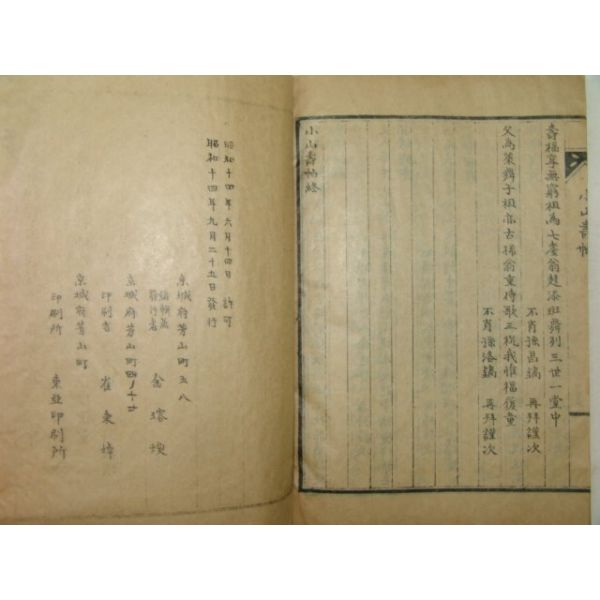 小山壽帖
壽福享無窮祖為七耋翁趍漆班舞列三世一堂中
不肖孫昌鎬 再拜謹次
父為萊舞子祖亦古稀翁重侍歌三祝我惟福復童
不肖孫洛鎬 再拜謹次
小山壽帖終
昭和十四年六月十四日 許可
昭和十四年九月二十五日發行
京城府芳山町五八
編輯兼
發行者 金瑢
京城府芳山町四ノ十七
印刷者 崔東
京城府芳山町
印刷所 東亞印刷所